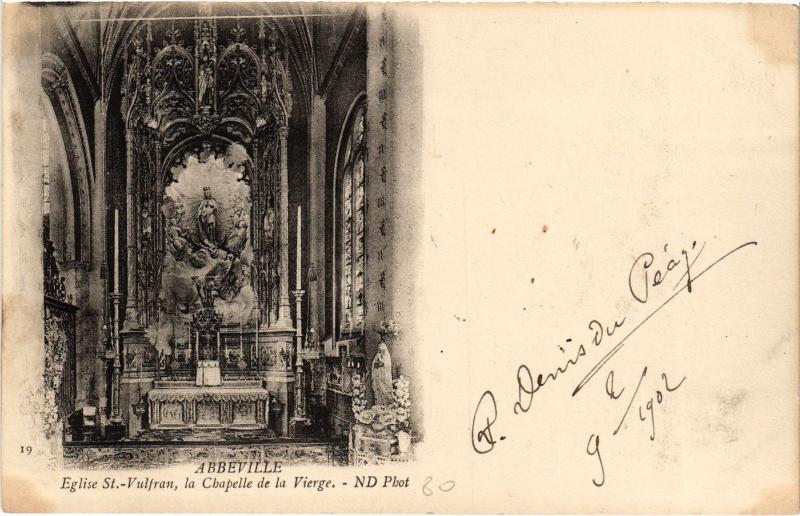 19
ABBEVILLE
Eglise St.-Vulfran, la Chapelle de la Vierge. - ND Phot
80
P. Denis du Péage
9 2/1902